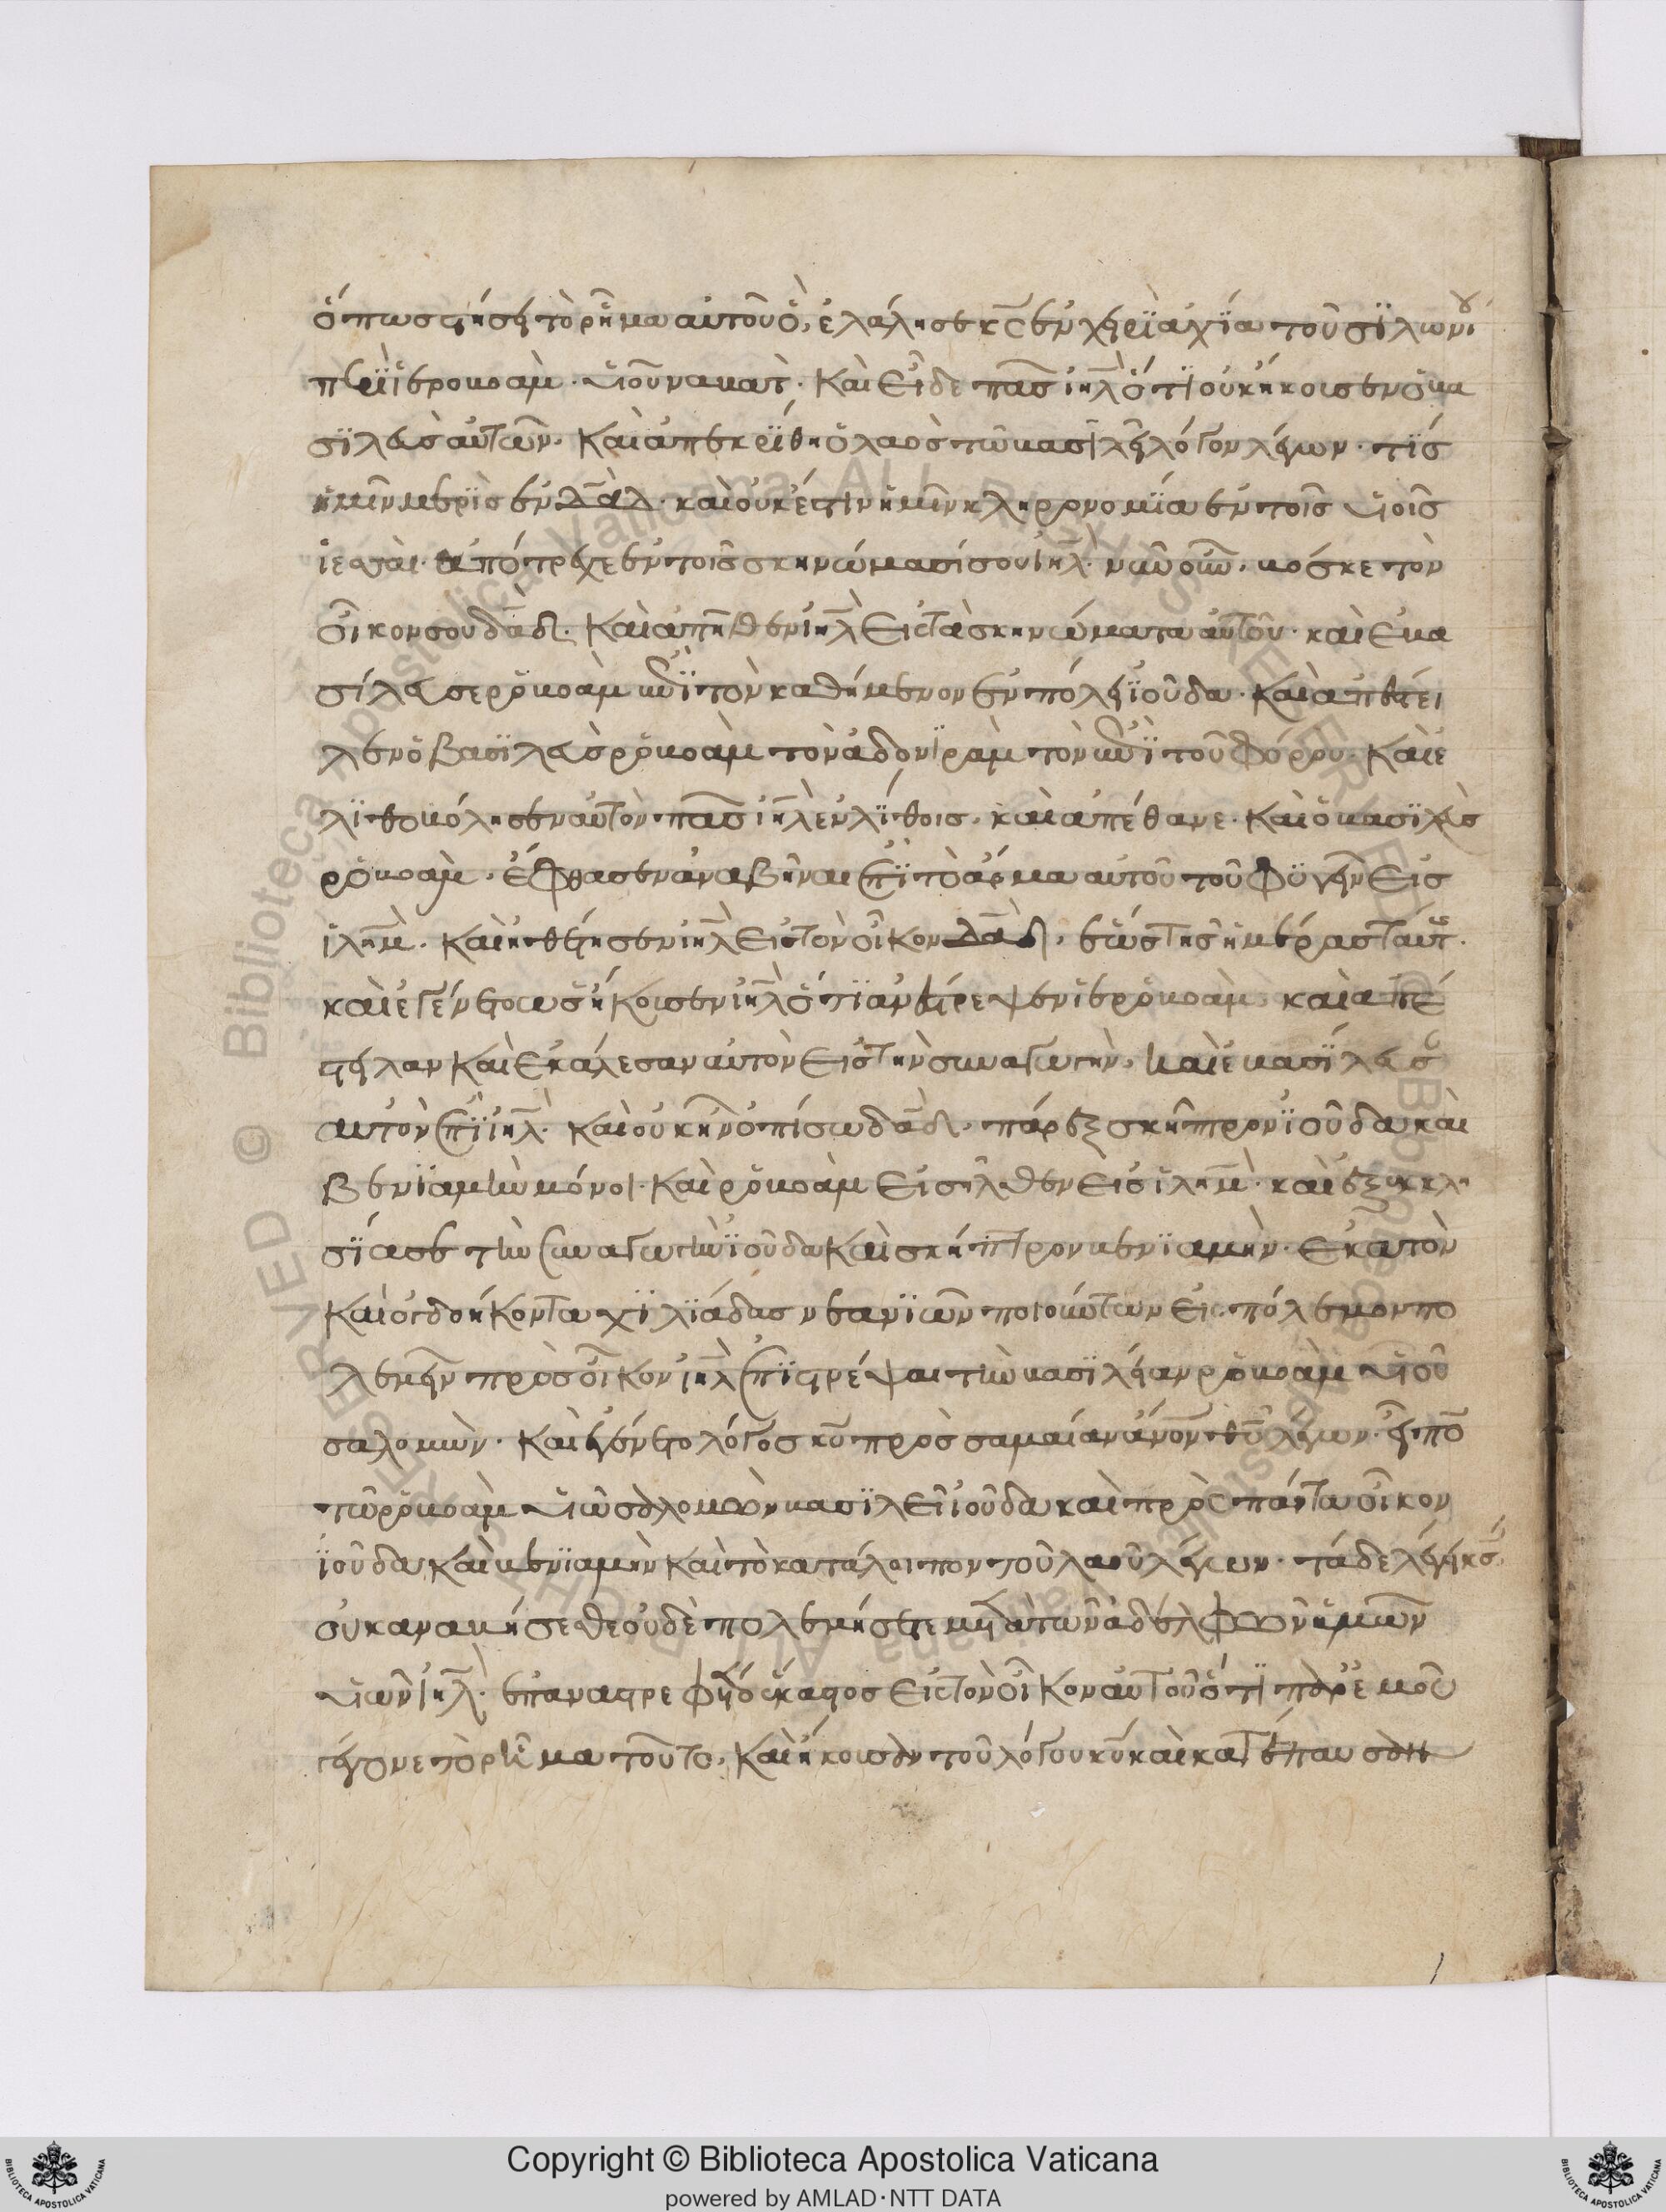 ὅπως στήση τὸ ρῆμα αὐτοῦ ὃ, ἐλάλησε κς ἐν χειρὶ ἀχία τοῦ σιλωνίτου
περὶ ἱεροβοὰμ. υἱοῦ ναβάτ. Καὶ εἶδε πᾶς ιηλ ὅτι οὐκ ἤκουσεν ὁ βα
σιλεὺς αὐτῶν. Καὶ ἀπεκρίθη ὁ λαὸς τῶ βασιλεῖ λόγον λέγων. τίς
ἡμῖν μερὶς ἐν δαδ. καὶ οὐκ ἔστιν ἡμῖν κληρονομία ἐν τοῖς υἱοῖς
ἰεσσαί. ἀπότρεχε ἐν τοῖς σκηνώμασί σου ιηλ. νῦν οὖν, βόσκε τὸν
οἶκον σου δαδ. Καὶ ἀπῆλθεν ιηλ εἰς τὰ σκηνώματα αὐτοῦ. καὶ ἐβα
σίλευσε ροβοὰμ ἐπὶ τὸν καθήμενον ἐν πόλει ἰούδα. Καὶ ἀπέστει
λεν ὁ βασιλεὺς ροβοὰμ τὸν ἀδονιρὰμ τὸν ἐπὶ τοῦ φόρου. Καὶ ἐ
λιθοβόλησεν αὐτὸν πᾶς ιηλ ἐν λίθοις. καὶ ἀπέθανε. Καὶ ὁ βασιλεὺς
ροβοὰμ. ἔφθασεν ἀναβῆναι ἐπὶ τὸ ἅρμα αὐτοῦ τοῦ φυγεῖν εἰς
ιλημ. καὶ ἠθέτησεν ιηλ εἰς τὸν οἶκον δαδ, ἕως τῆς ἡμέρας ταύτ.
καὶ ἐγένετο ὡς ἤκουσεν ιηλ ὅτι ἀνέστρεψεν ἱεροβοὰμ. καὶ ἀπέ
στειλαν καὶ ἐκάλεσαν αὐτὸν εἰς τὴν συναγωγὴν, καὶ ἐβασίλευσ
αὐτὸν ἐπὶ ιηλ. καὶ οὐκ ἦν ὀπίσω δαδ. πάρεξ σκῆπτρον ἰούδα καὶ
βενιαμὶν μόνοι. Καὶ ροβοὰμ εἰσῆλθεν εἰς ιλημ. καὶ ἐξεκκλη
σίασε τὴν συναγωγὴν ἰούδα καὶ σκήπτρον βενιαμὴν. ἑκατὸν
καὶ ὀγδοήκοντα χιλιάδας νεανιῶν ποιούντων εἰς πόλεμον πο
λεμεῖν πρὸς οἶκον ιηλ ἐπιστρέψαι τὴν βασιλείαν ροβοὰμ υἱοῦ
σαλομὼν. Καὶ ἐγένετο λόγος κυ πρὸς σαμαίαν ἄνον θυ λέγων. εἰπὸ
τῶ ροβοὰμ υἱῶ σολομὼν βασιλεῖ ἰούδα καὶ πρὸς πάντα οἶκον
ἰούδα καὶ βενιαμὴν καὶ τὸ κατάλοιπον τοῦ λαοῦ λέγων. τάδε λέγει κς
οὐκ ἀναβήσεσθε οὐδὲ πολεμήσετε μετὰ τῶν ἀδελφῶν ἡμῶν
υἱῶν ιηλ. ἐπαναστρεφέτω ἕκαστος εἰς τὸν οἶκον αὐτοῦ ὅτι παρ' ἐμοῦ
γέγονε τὸ ρῆμα τοῦτο. Καὶ ἤκουσαν τοῦ λόγου κυ καὶ κατέπαυσαν